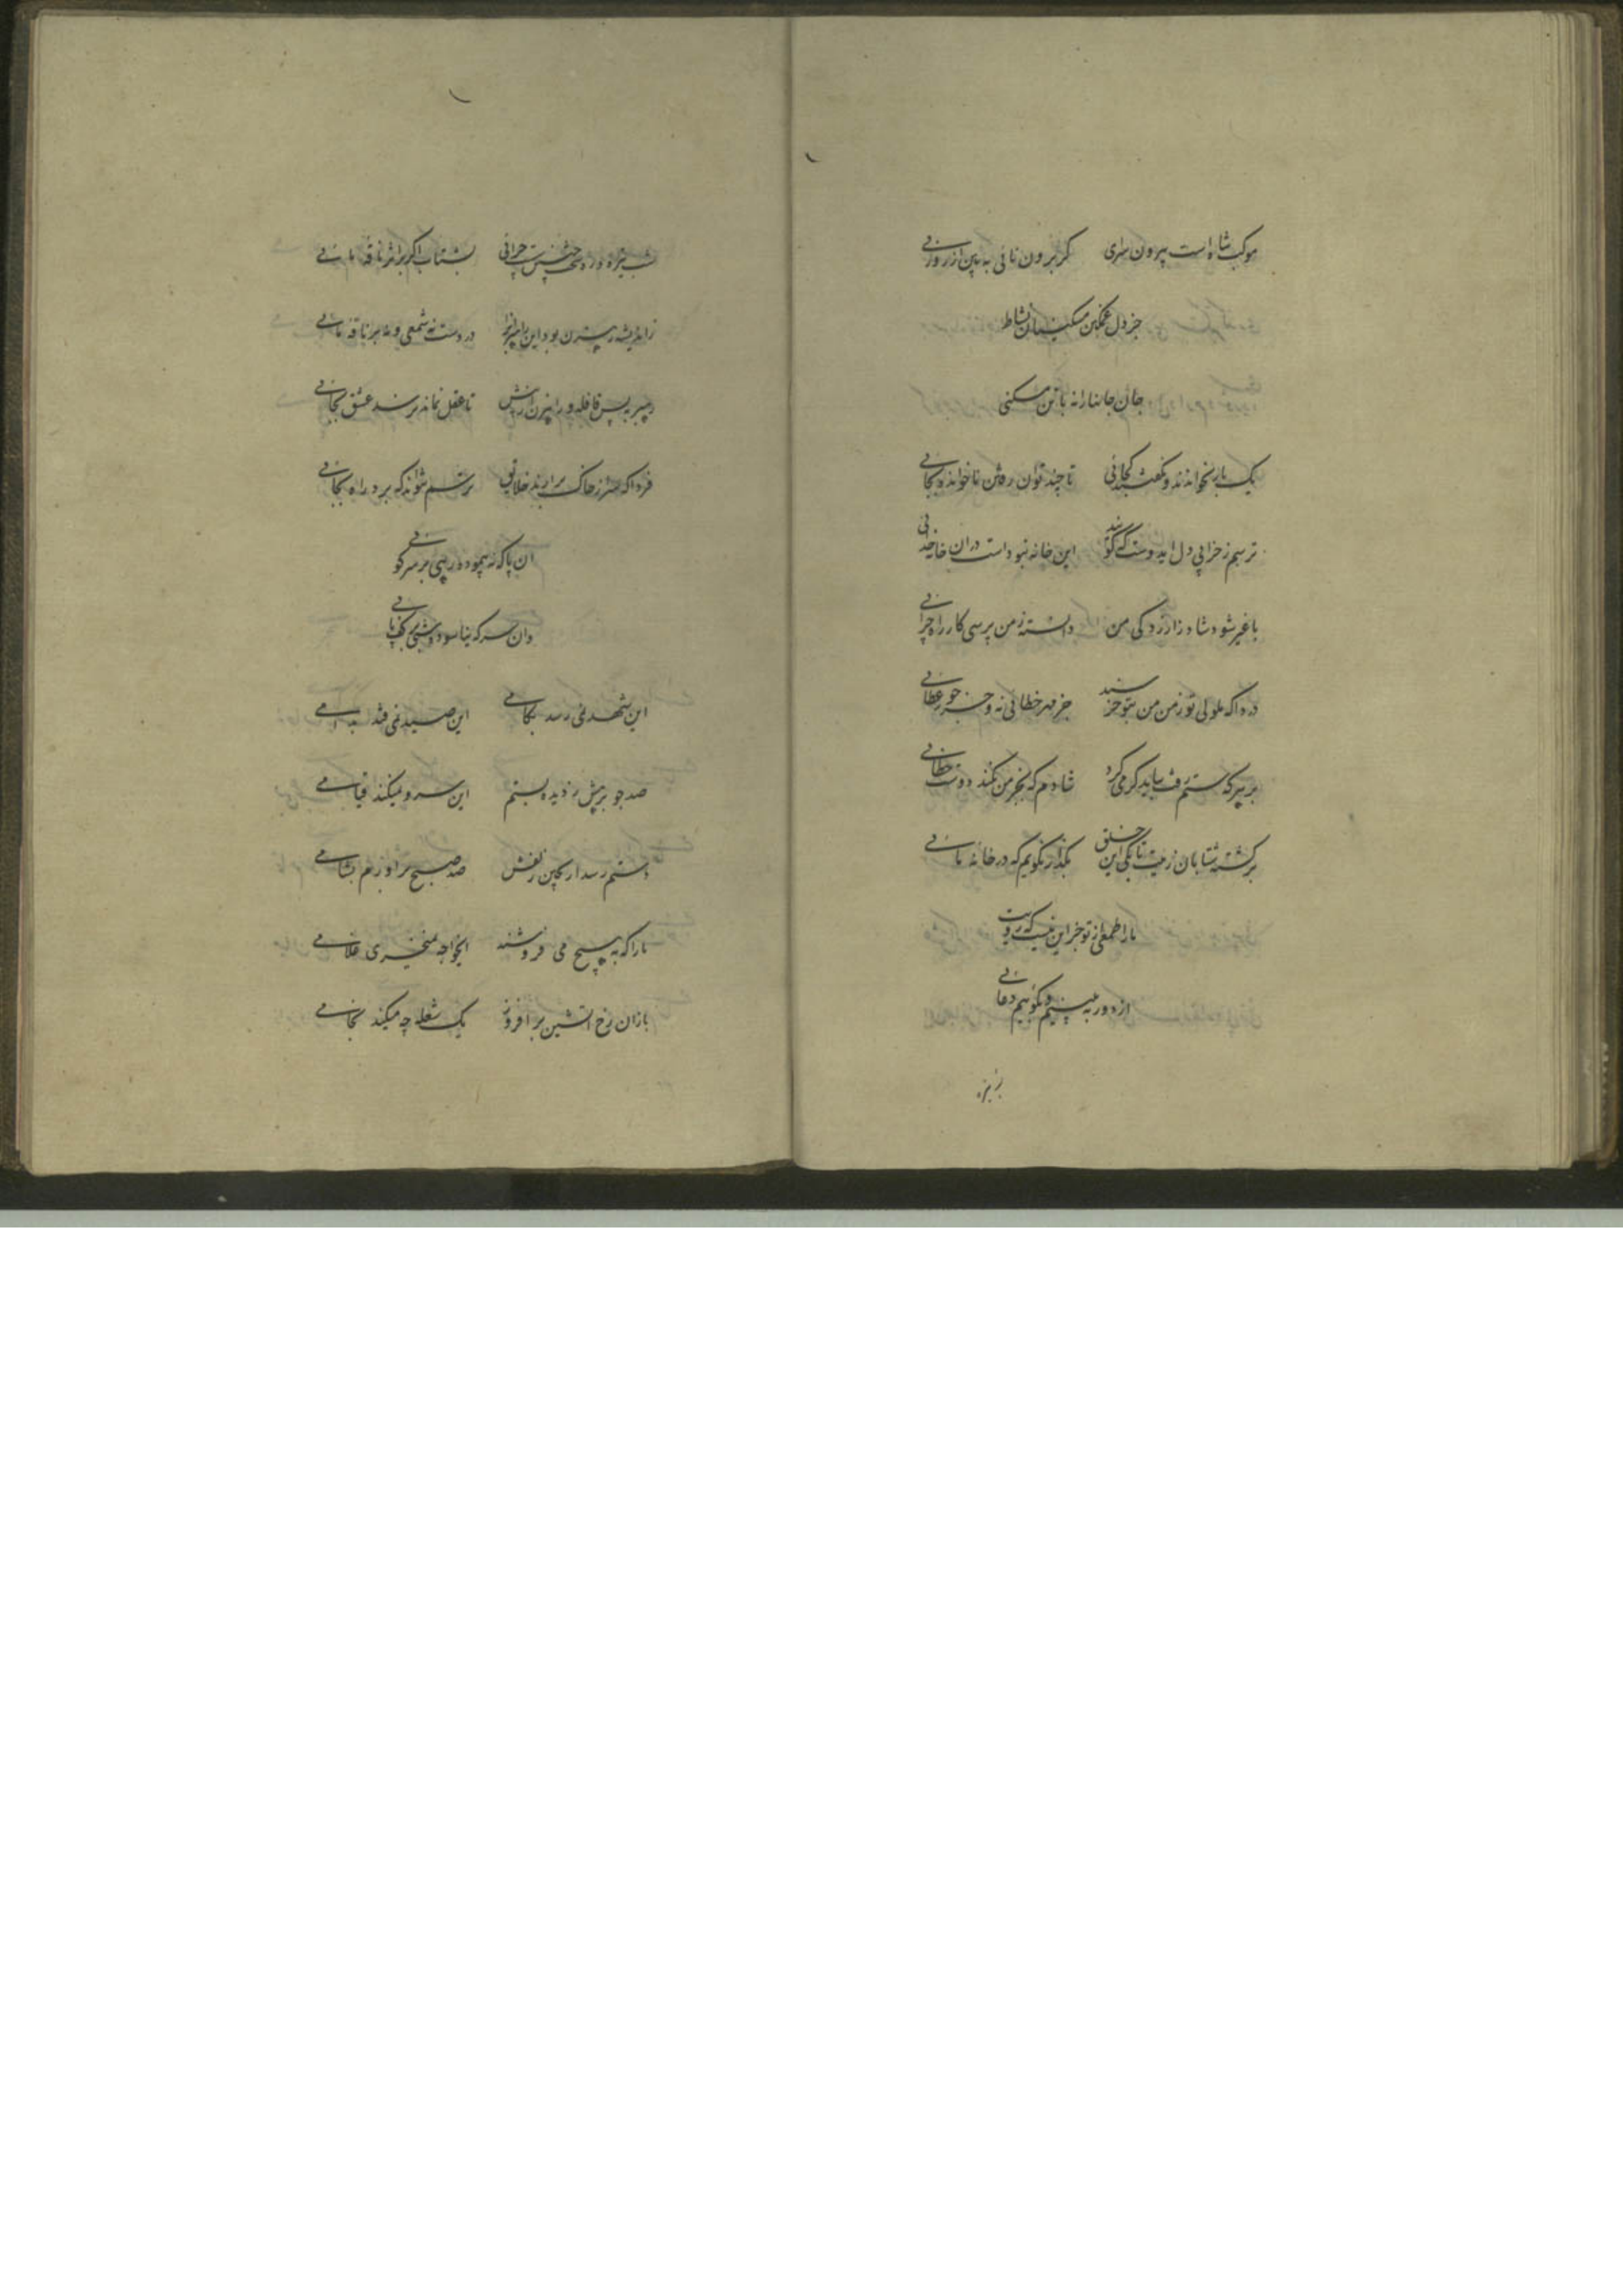 موکب شاه است بیرون سرای    کر برون نائی به بین از روزنی
جز دل غمکین مسکین نشاط
جان جانها را نه با تن مسکنی
یک بار نخواندند و نکفتند کجائی    تا چند توان رفتن ناخوانده بجائی
ترسم ز خرابی دل ایدوست که کویند    این خانه نبوداست در ان خانه خدائی
با غیر شود شاد ز ازردکی من    دانسته ز من پرسی کازرده چرائی
دردا که ملولی تو ز من من بتو خرسند    جز مهر خطائی نه و جز جور عطائی
بر هر که ستم رفت بباید کرمی کرد    شادم که بجز من نکند دوست خطائی
برکشته شتابان ز پیت تا بکی این خلق    بکذار بکویم که در خانه مائی
ما را طمعی از تو جز این نیست که رویت
از دور به بینیم و بکوئیم دعائی
شب تیره و ره
شب تیره و در ره نه چراغی    بشتاب اکر بر اثر ناقه مائی
ز اندیشه رستن بود این    در دست نه شمعی و نه بر ناقه درائی
رهبر به پس قافله و راهزن از پیش    تا عقل نماند نرسد عشق بجائی
فردا که سر از خاک برارند خلایق    ترسم نتواند که برد راه بجائی
ان پا که نه پیموده رهی بر سر کوئی
وان سر که نیاسود شبی بر کف پائی
این شهد نمی رسد بکامی    این صید نمی فتد بدامی
صد جو برهش ز دیده بستم    این سرو نمیکند قیامی
دستم رسد ار بچین زلفش    صد صبح براورم بشامی
ما را که به هیچ می فروشند    ایخواجه نمیخری غلامی
باز ان رخ اتشین برافروز    یک شعله چه میکند بخامی